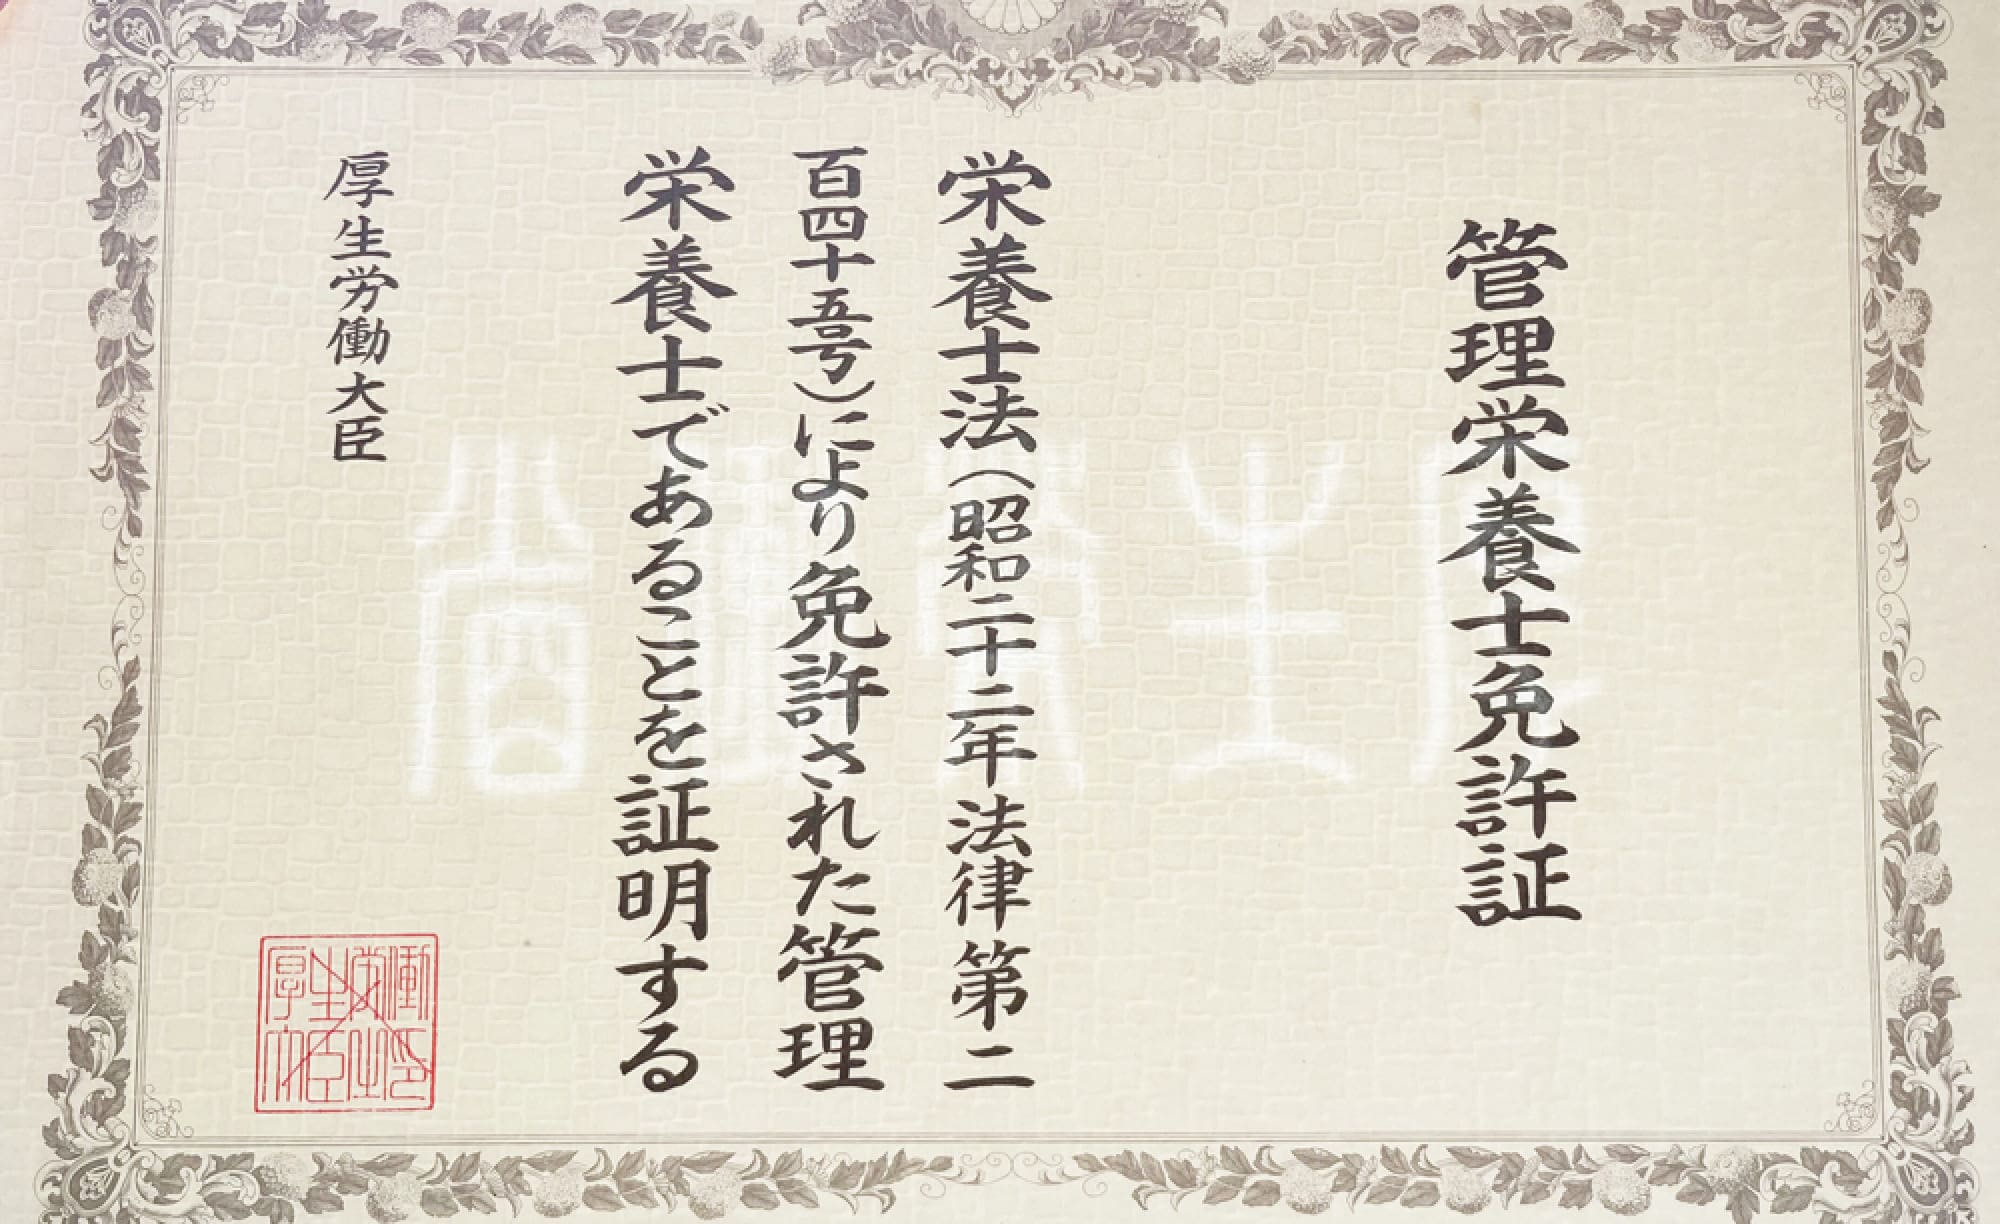 管理栄養士免許証
栄養士法（昭和二十二年法律第二
百四十五号）により免許された管理
栄養士であることを証明する
厚生労働大臣